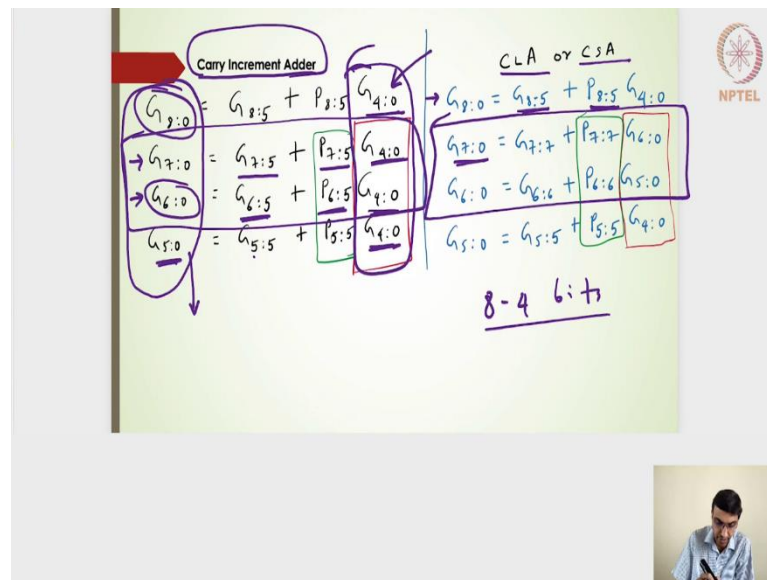 Carry Increment Adder
G8:0 = G8:5 + P8:5 G4:0
→ G7:0 = G7:5 + P7:5 G4:0
→ G6:0 = G6:5 + P6:5 G4:0
G5:0 = G5:5 + P5:5 G4:0
CLA or CSA
→ G8:0 = G8:5 + P8:5 G4:0
G7:0 = G7:7 + P7:7 G6:0
G6:0 = G6:6 + P6:6 G5:0
G5:0 = G5:5 + P5:5 G4:0
8-4 bits
NPTEL